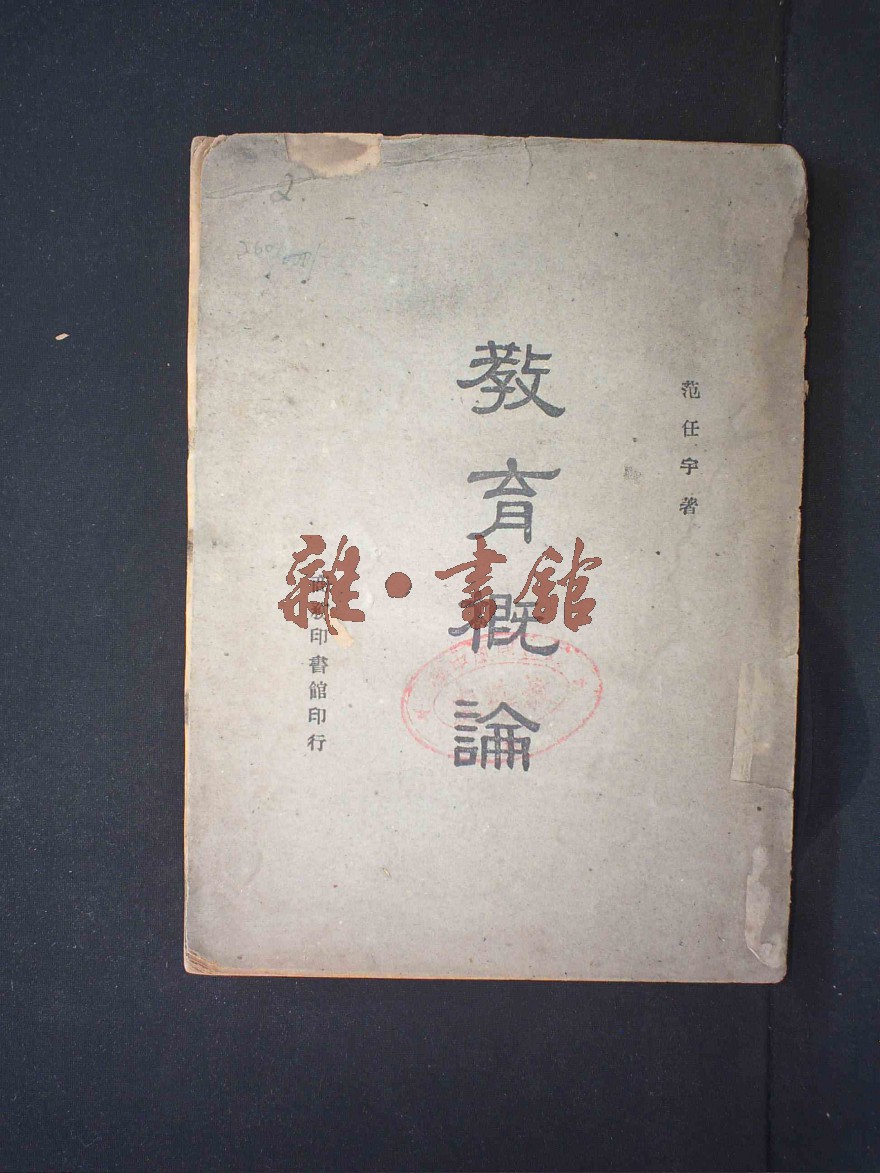 范任宇著
教育概論
商務印書館印行
雜·書館
2